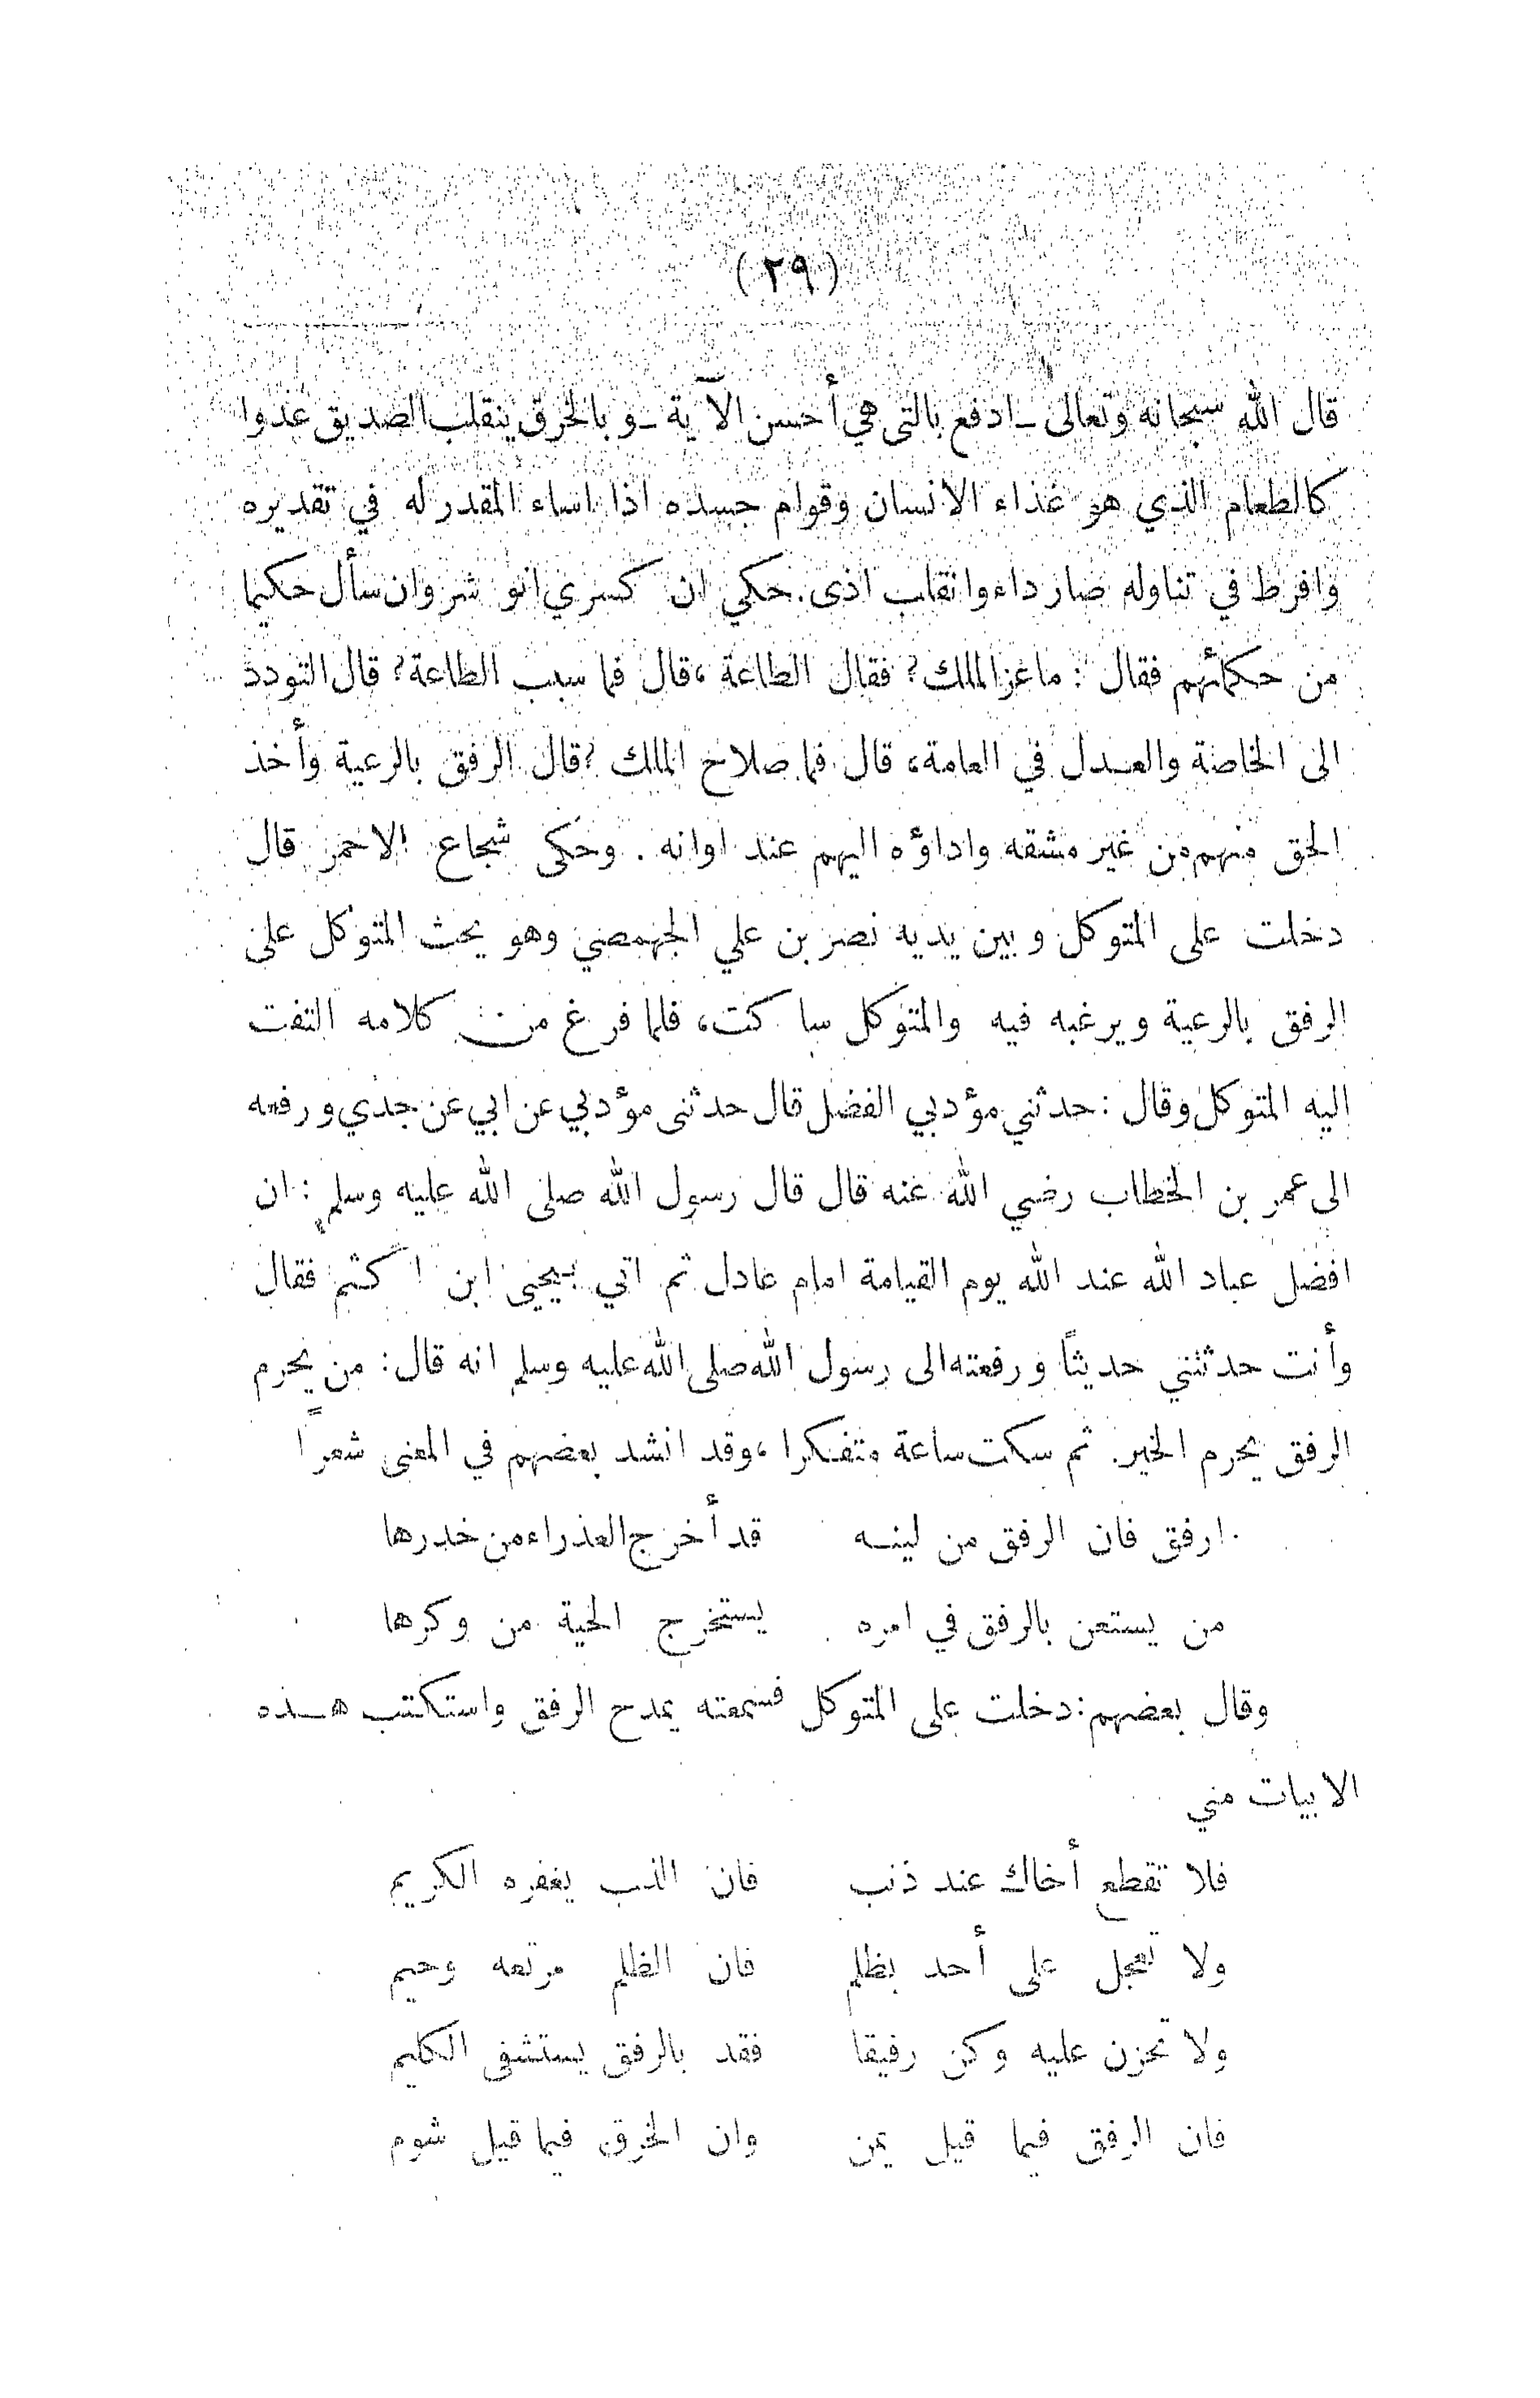 (٢٩)
قال الله سبحانه وتعالى ـ ادفع بالتي هي أحسن الآية ـ وبالخرق ينقلب الصديق عدوا
كالطعام الذي هو غذاء الانسان وقوام جسده اذا اساء المقدر له في تقديره
وافرط في تناوله صار داء وانقلب اذى . حكي ان كسرى انو شروان سأل حكيما
من حكمائهم فقال : ما عز الملك ؟ فقال الطاعة ، قال فما سبب الطاعة ؟ قال التودد
الى الخاصة والعدل في العامة ، قال فما صلاح الملك ؟ قال الرفق بالرعية وأخذ
الحق منهم من غير مشقه واداؤه اليهم عند اوانه . وحكى شجاع الاحمر قال
دخلت على المتوكل وبين يديه نصر بن علي الجهمضي وهو يحث المتوكل على
الرفق بالرعية ويرغبه فيه والمتوكل ساكت ، فلما فرغ من كلامه التفت
اليه المتوكل وقال : حدثني مؤدبي الفضل قال حدثنى مؤدبي عن ابي عن جدي ورفعه
الى عمر بن الخطاب رضي الله عنه قال قال رسول الله صلى الله عليه وسلم : ان
افضل عباد الله عند الله يوم القيامة امام عادل ثم اتي بيحيى ابن اكثم فقال
وأنت حدثتني حديثاً ورفعته الى رسول الله صلى الله عليه وسلم انه قال : من يحرم
الرفق يحرم الخير . ثم سكت ساعة متفكرا ، وقد انشد بعضهم في المعنى شعراً
ارفق فان الرفق من لينه قد أخرج العذراء من خدرها
من يستعن بالرفق في امره يستخرج الحية من وكرها
وقال بعضهم : دخلت على المتوكل فسمعته يمدح الرفق واستكتب هذه
الابيات مني
فلا تقطع أخاك عند ذنب فان الذنب يغفره الكريم
ولا تعجل على أحد بظلم فان الظلم مرتعه وخيم
ولا تحزن عليه وكن رفيقا فقد بالرفق يستشفى الكليم
فان الرفق فيما قيل يمن وان الخرق فيما قيل شوم